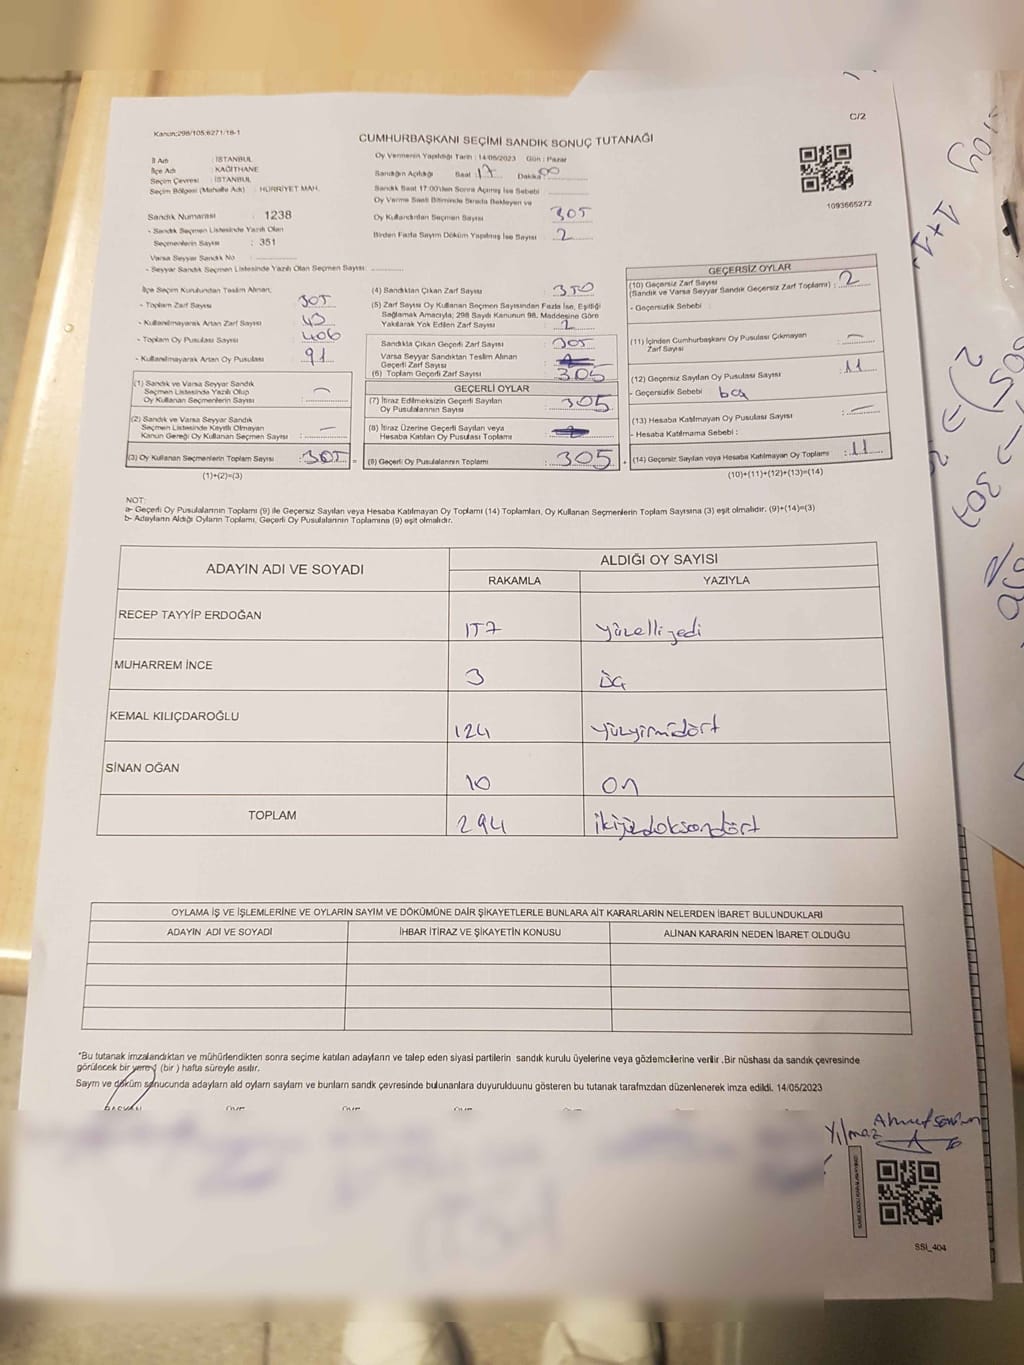 Kanun:298/105;6271/18-1
C/2
CUMHURBAŞKANI SEÇİMİ SANDIK SONUÇ TUTANAĞI
İl Adı : İSTANBUL
İlçe Adı : KAĞITHANE
Seçim Çevresi : İSTANBUL
Seçim Bölgesi (Mahalle Adı) : HÜRRİYET MAH.
Sandık Numarası : 1238
- Sandık Seçmen Listesinde Yazılı Olan
Seçmenlerin Sayısı : 351
Varsa Seyyar Sandık No :
- Seyyar Sandık Seçmen Listesinde Yazılı Olan Seçmen Sayısı
Oy Vermenin Yapıldığı Tarih : 14/05/2023 Gün : Pazar
Sandığın Açıldığı Saat : 17 Dakika : 00
Sandık Saat 17:00'den Sonra Açılmış İse Sebebi
Oy Verme Saati Bitiminde Sırada Bekleyen ve
Oy Kullandırılan Seçmen Sayısı 305
Birden Fazla Sayım Döküm Yapılmış İse Sayısı 2
1093665272
İlçe Seçim Kurulundan Teslim Alınan;
- Toplam Zarf Sayısı 305
- Kullanılmayarak Artan Zarf Sayısı 43
- Toplam Oy Pusulası Sayısı 406
- Kullanılmayarak Artan Oy Pusulası 91
(1) Sandık ve Varsa Seyyar Sandık
Seçmen Listesinde Yazılı Olup
Oy Kullanan Seçmenlerin Sayısı : —
(2) Sandık ve Varsa Seyyar Sandık
Seçmen Listesinde Kayıtlı Olmayan
Kanun Gereği Oy Kullanan Seçmen Sayısı : —
(3) Oy Kullanan Seçmenlerin Toplam Sayısı : 305 =
(1)+(2)=(3)
(4) Sandıktan Çıkan Zarf Sayısı : 350
(5) Zarf Sayısı Oy Kullanan Seçmen Sayısından Fazla İse, Eşitliği
Sağlamak Amacıyla; 298 Sayılı Kanunun 98. Maddesine Göre
Yakılarak Yok Edilen Zarf Sayısı : 2
Sandıkta Çıkan Geçerli Zarf Sayısı : 305
Varsa Seyyar Sandıktan Teslim Alınan
Geçerli Zarf Sayısı
(6) Toplam Geçerli Zarf Sayısı : 305
GEÇERLİ OYLAR
(7) İtiraz Edilmeksizin Geçerli Sayılan
Oy Pusulalarının Sayısı : 305
(8) İtiraz Üzerine Geçerli Sayılan veya
Hesaba Katılan Oy Pusulası Toplamı :
(9) Geçerli Oy Pusulalarının Toplamı : 305 +
GEÇERSİZ OYLAR
(10) Geçersiz Zarf Sayısı
(Sandık ve Varsa Seyyar Sandık Geçersiz Zarf Toplamı) : 2
- Geçersizlik Sebebi :
(11) İçinden Cumhurbaşkanı Oy Pusulası Çıkmayan
Zarf Sayısı : —
(12) Geçersiz Sayılan Oy Pusulası Sayısı : 11
- Geçersizlik Sebebi :
(13) Hesaba Katılmayan Oy Pusulası Sayısı : —
- Hesaba Katılmama Sebebi :
(14) Geçersiz Sayılan veya Hesaba Katılmayan Oy Toplamı : 11
(10)+(11)+(12)+(13)=(14)
NOT:
a- Geçerli Oy Pusulalarının Toplamı (9) ile Geçersiz Sayılan veya Hesaba Katılmayan Oy Toplamı (14) Toplamları, Oy Kullanan Seçmenlerin Toplam Sayısına (3) eşit olmalıdır. (9)+(14)=(3)
b- Adayların Aldığı Oyların Toplamı, Geçerli Oy Pusulalarının Toplamına (9) eşit olmalıdır.
ADAYIN ADI VE SOYADI
ALDIĞI OY SAYISI
RAKAMLA YAZIYLA
RECEP TAYYİP ERDOĞAN 157 yüzelliyedi
MUHARREM İNCE 3 üç
KEMAL KILIÇDAROĞLU 124 yüzyirmidört
SİNAN OĞAN 10 on
TOPLAM 294 ikiyüzdoksandört
OYLAMA İŞ VE İŞLEMLERİNE VE OYLARIN SAYIM VE DÖKÜMÜNE DAİR ŞİKAYETLERLE BUNLARA AİT KARARLARIN NELERDEN İBARET BULUNDUKLARI
ADAYIN ADI VE SOYADI İHBAR İTİRAZ VE ŞİKAYETİN KONUSU ALINAN KARARIN NEDEN İBARET OLDUĞU
*Bu tutanak imzalandıktan ve mühürlendikten sonra seçime katılan adayların ve talep eden siyasi partilerin sandık kurulu üyelerine veya gözlemcilerine verilir. Bir nüshası da sandık çevresinde
görülecek bir yere 1 (bir) hafta süreyle asılır.
Sayım ve döküm sonucunda adayların ald oyların sayların ve bunların sandık çevresinde bulunanlara duyurulduunu gösteren bu tutanak tarafmzdan düzenlenerek imza edildi. 14/05/2023
BAŞKAN ÜYE ÜYE ÜYE ÜYE ÜYE
Yılmaz
SSİ_404